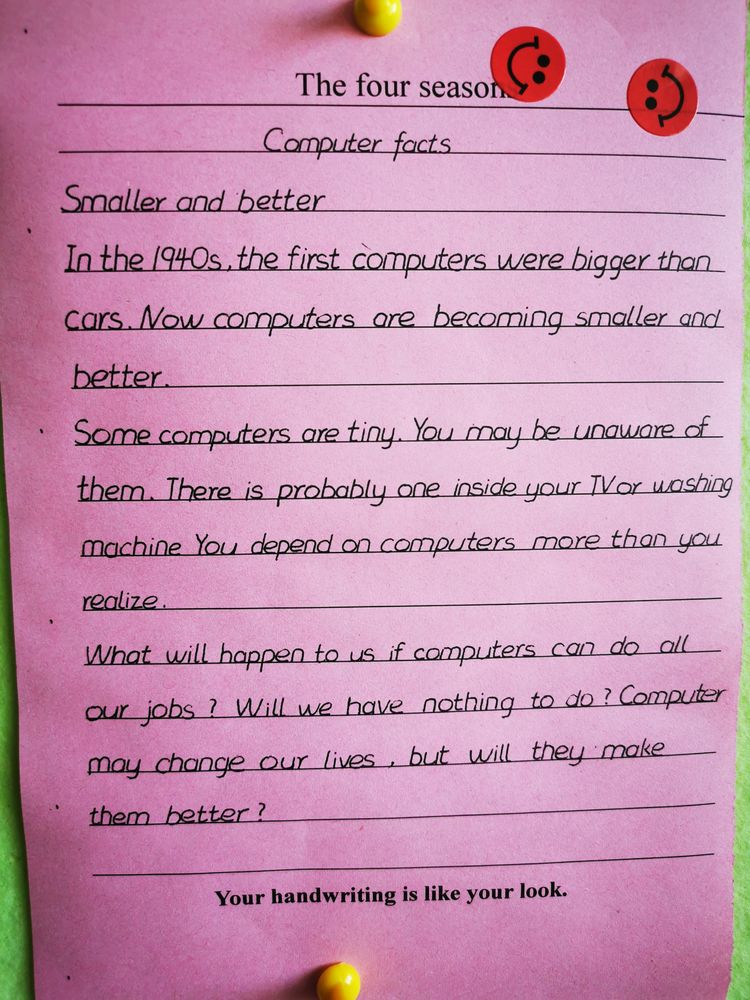 The four season
Computer facts
Smaller and better
In the 1940s, the first computers were bigger than
cars. Now computers are becoming smaller and
better.
Some computers are tiny. You may be unaware of
them. There is probably one inside your TV or washing
machine You depend on computers more than you
realize.
What will happen to us if computers can do all
our jobs? Will we have nothing to do? Computer
may change our lives, but will they make
them better?
Your handwriting is like your look.